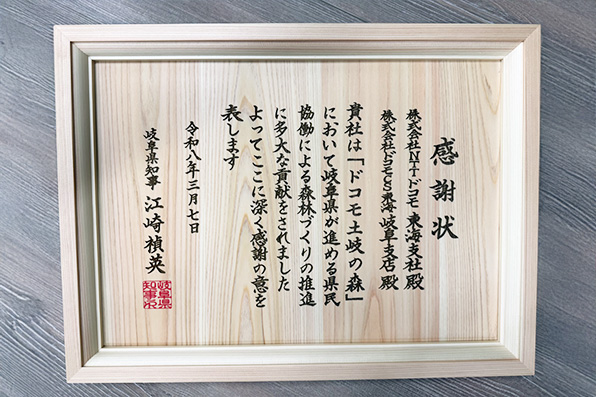 感謝状
株式会社NTTドコモ 東海支社 殿
株式会社ドコモCS東海 岐阜支店 殿
貴社は「ドコモ土岐の森」
において岐阜県が進める県民
協働による森林づくりの推進
に多大な貢献をされました
よってここに深く感謝の意を
表します
令和八年三月七日
岐阜県知事 江崎禎英
岐阜県
知事印